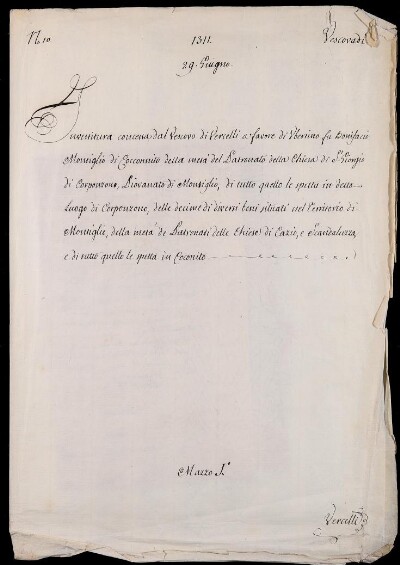 N. 10
1311.
Vescovadi
29. Giugno.
Investitura concessa dal Vescovo di Vercelli a favore di Uberino fu Bonifacio
Montiglio di Cocconito della metà del Patronato della Chiesa di S. Giorgio
di Corponzono, Piovanato di Montiglio, di tutto quello le spetta in detto
Luogo di Corponzone, delle decime di diversi beni situati nel Territorio di
Montiglio, della metà de Patronati delle Chiese di Cazio, e Scandaluzza,
e di tutto quello le spetta in Coconito
Mazzo I.°
Vercelli